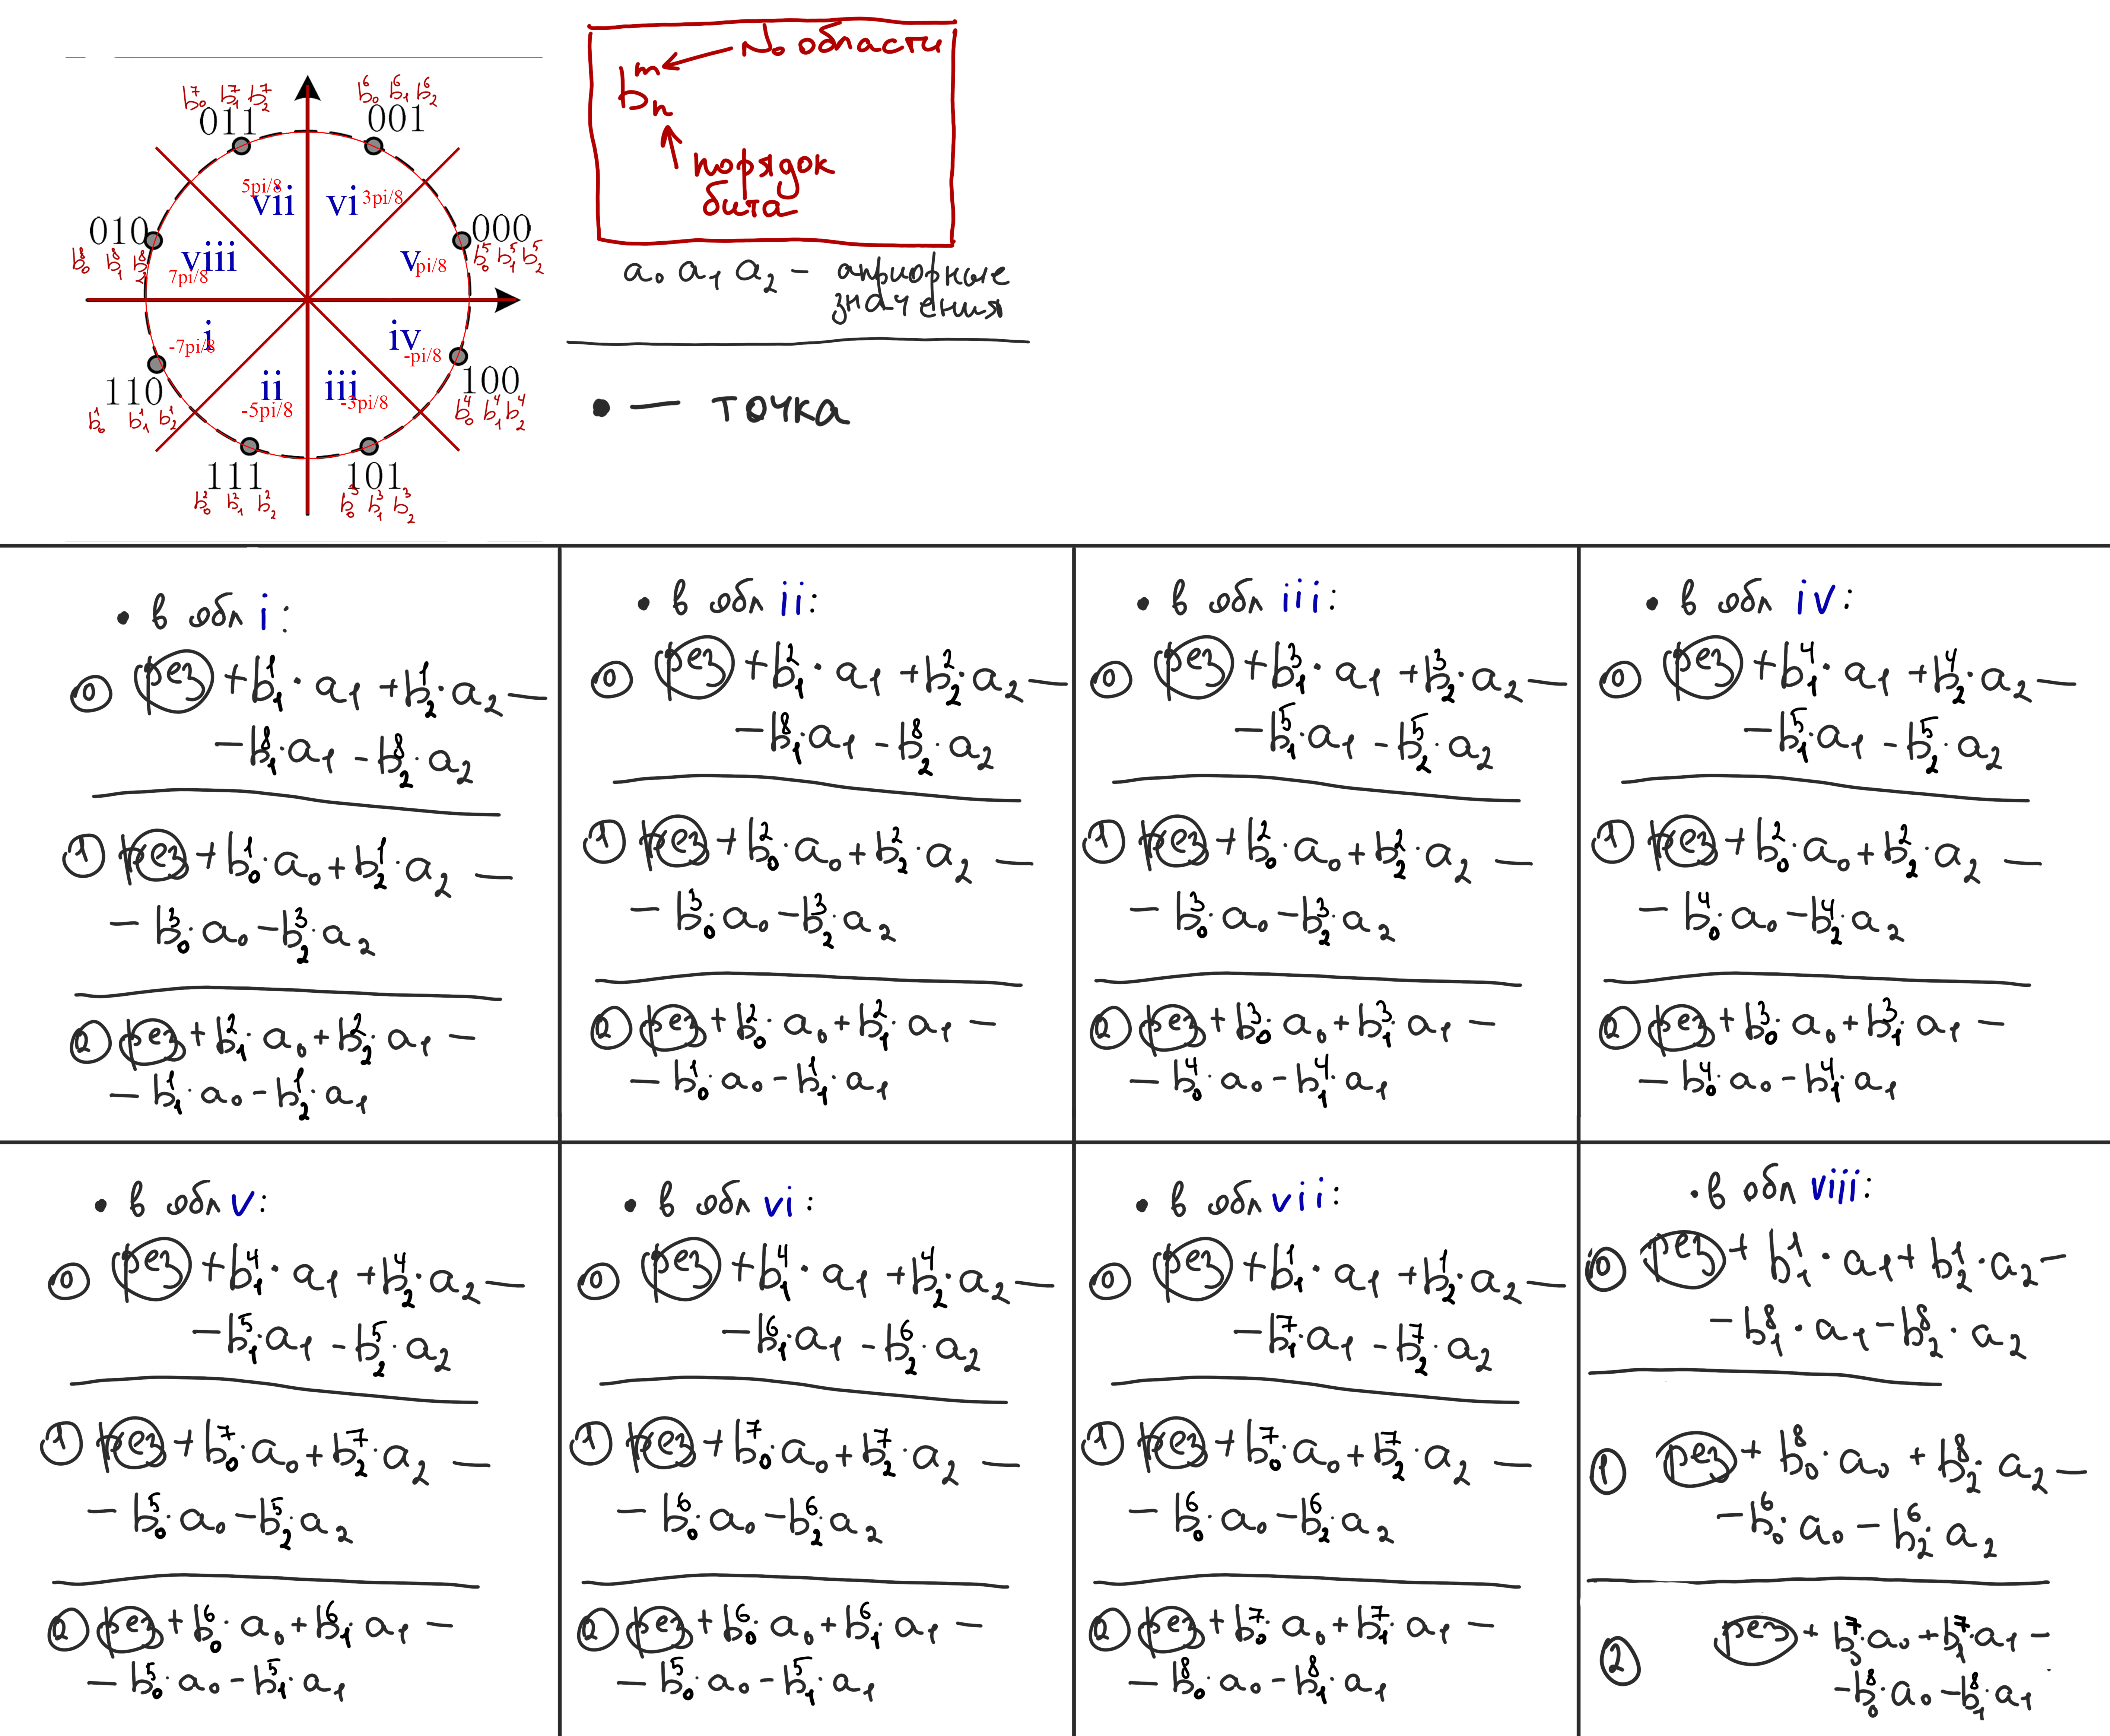 b₀⁷ b₁⁷ b₂⁷
011
b₀⁶ b₁⁶ b₂⁶
001
5pi/8
vii
vi
3pi/8
010
b₀⁸ b₁⁸ b₂⁸
viii
7pi/8
000
b₀⁵ b₁⁵ b₂⁵
v
pi/8
i
-7pi/8
iv
-pi/8
110
b₀¹ b₁¹ b₂¹
ii
-5pi/8
iii
-3pi/8
100
b₀⁴ b₁⁴ b₂⁴
111
b₀² b₁² b₂²
101
b₀³ b₁³ b₂³
bₙᵐ ← № области
порядок
бита
a₀ a₁ a₂ – априорные
значения
• — точка
• в обл i:
0 рез + b₁¹ · a₁ + b₂¹ · a₂ —
– b₁⁸ · a₁ – b₂⁸ · a₂
1 рез + b₀¹ · a₀ + b₂¹ · a₂ —
– b₀³ · a₀ – b₂³ · a₂
2 рез + b₁² · a₀ + b₂² · a₁ —
– b₁¹ · a₀ – b₂¹ · a₁
• в обл ii:
0 рез + b₁² · a₁ + b₂² · a₂ —
– b₁⁸ · a₁ – b₂⁸ · a₂
1 рез + b₀² · a₀ + b₂² · a₂ —
– b₀³ · a₀ – b₂³ · a₂
2 рез + b₀² · a₀ + b₁² · a₁ —
– b₀¹ · a₀ – b₁¹ · a₁
• в обл iii:
0 рез + b₁³ · a₁ + b₂³ · a₂ —
– b₁⁵ · a₁ – b₂⁵ · a₂
1 рез + b₀² · a₀ + b₂² · a₂ —
– b₀³ · a₀ – b₂³ · a₂
2 рез + b₀³ · a₀ + b₁³ · a₁ —
– b₀⁴ · a₀ – b₁⁴ · a₁
• в обл iv:
0 рез + b₁⁴ · a₁ + b₂⁴ · a₂ —
– b₁⁵ · a₁ – b₂⁵ · a₂
1 рез + b₀² · a₀ + b₂² · a₂ —
– b₀⁴ · a₀ – b₂⁴ · a₂
2 рез + b₀³ · a₀ + b₁³ · a₁ —
– b₀⁴ · a₀ – b₁⁴ · a₁
• в обл v:
0 рез + b₁⁴ · a₁ + b₂⁴ · a₂ —
– b₁⁵ · a₁ – b₂⁵ · a₂
1 рез + b₀⁷ · a₀ + b₂⁷ · a₂ —
– b₀⁵ · a₀ – b₂⁵ · a₂
2 рез + b₀⁶ · a₀ + b₁⁶ · a₁ —
– b₀⁵ · a₀ – b₁⁵ · a₁
• в обл vi:
0 рез + b₁⁴ · a₁ + b₂⁴ · a₂ —
– b₁⁶ · a₁ – b₂⁶ · a₂
1 рез + b₀⁷ · a₀ + b₂⁷ · a₂ —
– b₀⁶ · a₀ – b₂⁶ · a₂
2 рез + b₀⁶ · a₀ + b₁⁶ · a₁ —
– b₀⁵ · a₀ – b₁⁵ · a₁
• в обл vii:
0 рез + b₁¹ · a₁ + b₂¹ · a₂ —
– b₁⁷ · a₁ – b₂⁷ · a₂
1 рез + b₀⁷ · a₀ + b₂⁷ · a₂ —
– b₀⁶ · a₀ – b₂⁶ · a₂
2 рез + b₀⁷ · a₀ + b₁⁷ · a₁ —
– b₀⁸ · a₀ – b₁⁸ · a₁
• в обл viii:
0 рез + b₁¹ · a₁ + b₂¹ · a₂ —
– b₁⁸ · a₁ – b₂⁸ · a₂
1 рез + b₀⁸ · a₀ + b₂⁸ · a₂ —
– b₀⁶ · a₀ – b₂⁶ · a₂
2 рез + b₀⁷ · a₀ + b₁⁷ · a₁ —
– b₀⁸ · a₀ – b₁⁸ · a₁